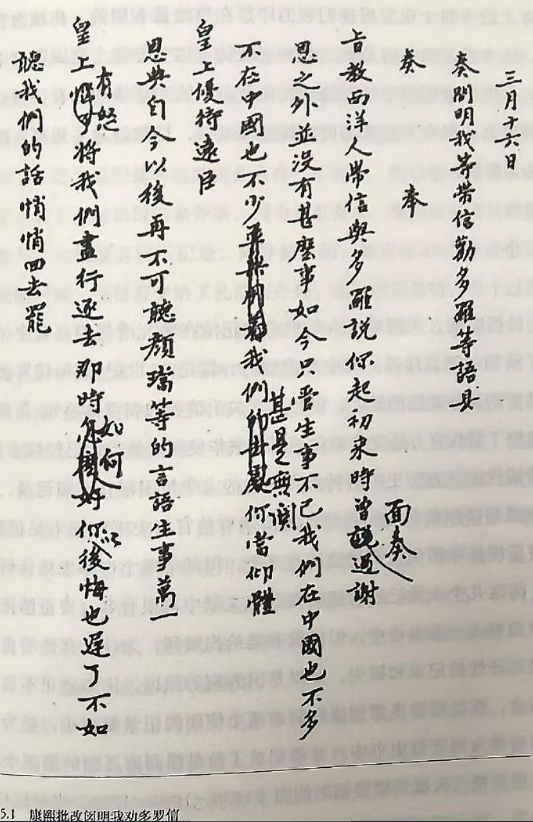 三月十六日
奏閔明我等帶信勸多羅等語具
奏 奏
旨教西洋人帶信與多羅說你起初來時曾面奏過謝
恩之外並沒有甚麼事如今只要生事不已我們在中國也不多
不在中國也不少我們甚是無關何當仰體
皇上優待遠臣
恩典自今以後再不可聽顏璫等的言語生事萬一
皇上有怒將我們盡行逐去那時如何好你以後悔也遲了不如
聽我們的話悄悄回去罷
5.1 康熙批改闵明我劝多罗信